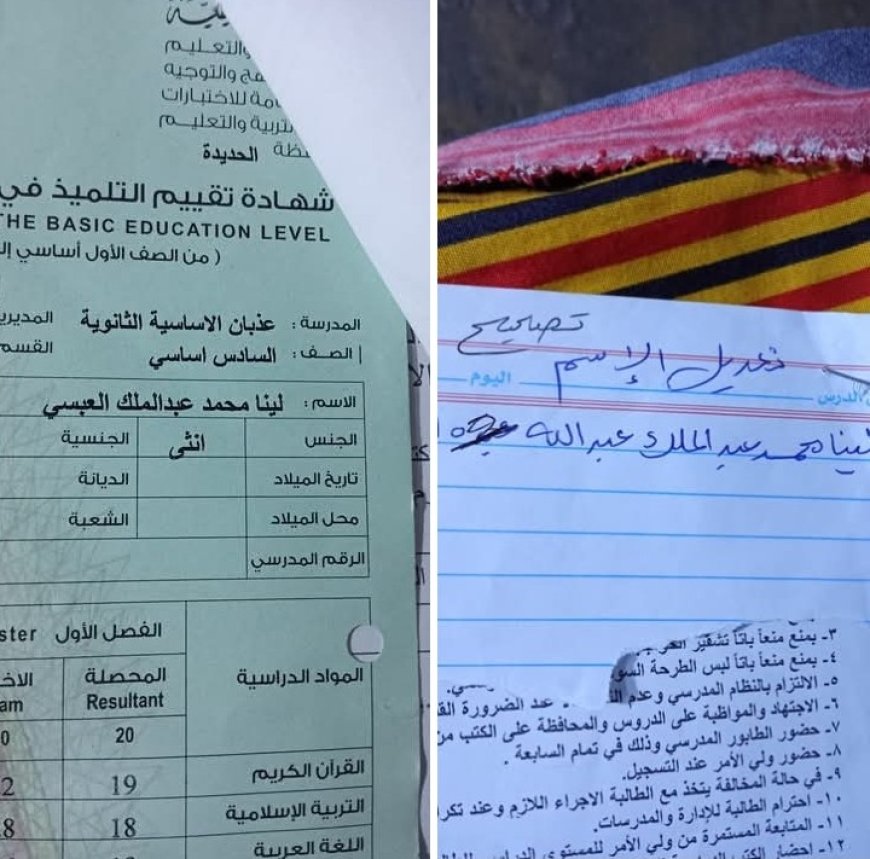 والتعليم
والتوجيه
للاختبارات
والتعليم
الحديدة
شهادة تقييم التلميذ في
THE BASIC EDUCATION LEVEL
( من الصف الأول أساسي
المدرسة : عذبان الاساسية الثانوية
الصف : السادس اساسي القسم
الاسم : لينا محمد عبدالملك العبسي
الجنس انثى الجنسية
تاريخ الميلاد الديانة
محل الميلاد الشعبة
الرقم المدرسي
المواد الدراسية الفصل الأول ster
المحصلة
Resultant am
20 0
القرآن الكريم 19 2
التربية الإسلامية 18 8
اللغة العربية
تصحيح
تعديل الإسم
الدرس اليوم
لينا محمد عبد الملك عبد الله
٣- يمنع منعاً باتاً تشقير
٤- يمنع منعاً باتاً لبس الطرحة
٥- الالتزام بالنظام المدرسي وعدم عند الضرورة
٦- الاجتهاد والمواظبة على الدروس والمحافظة على الكتب
٧- حضور الطابور المدرسي وذلك في تمام السابعة .
٨- حضور ولي الأمر عند التسجيل.
٩- في حالة المخالفة يتخذ مع الطالبة الاجراء اللازم وعند
١٠- احترام الطالبة للإدارة والمدرسات.
١١- المتابعة المستمرة من ولي الأمر للمستوى الدراسي
١٢- احضار الكتب